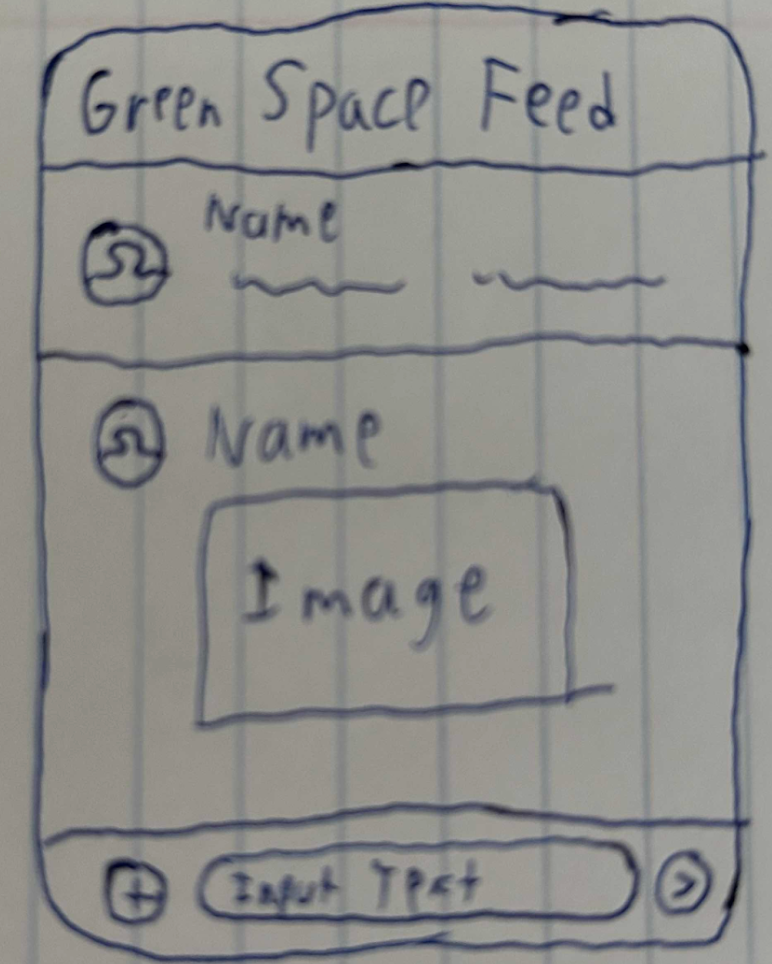 Green Space Feed
Name
Name
Image
Input Text